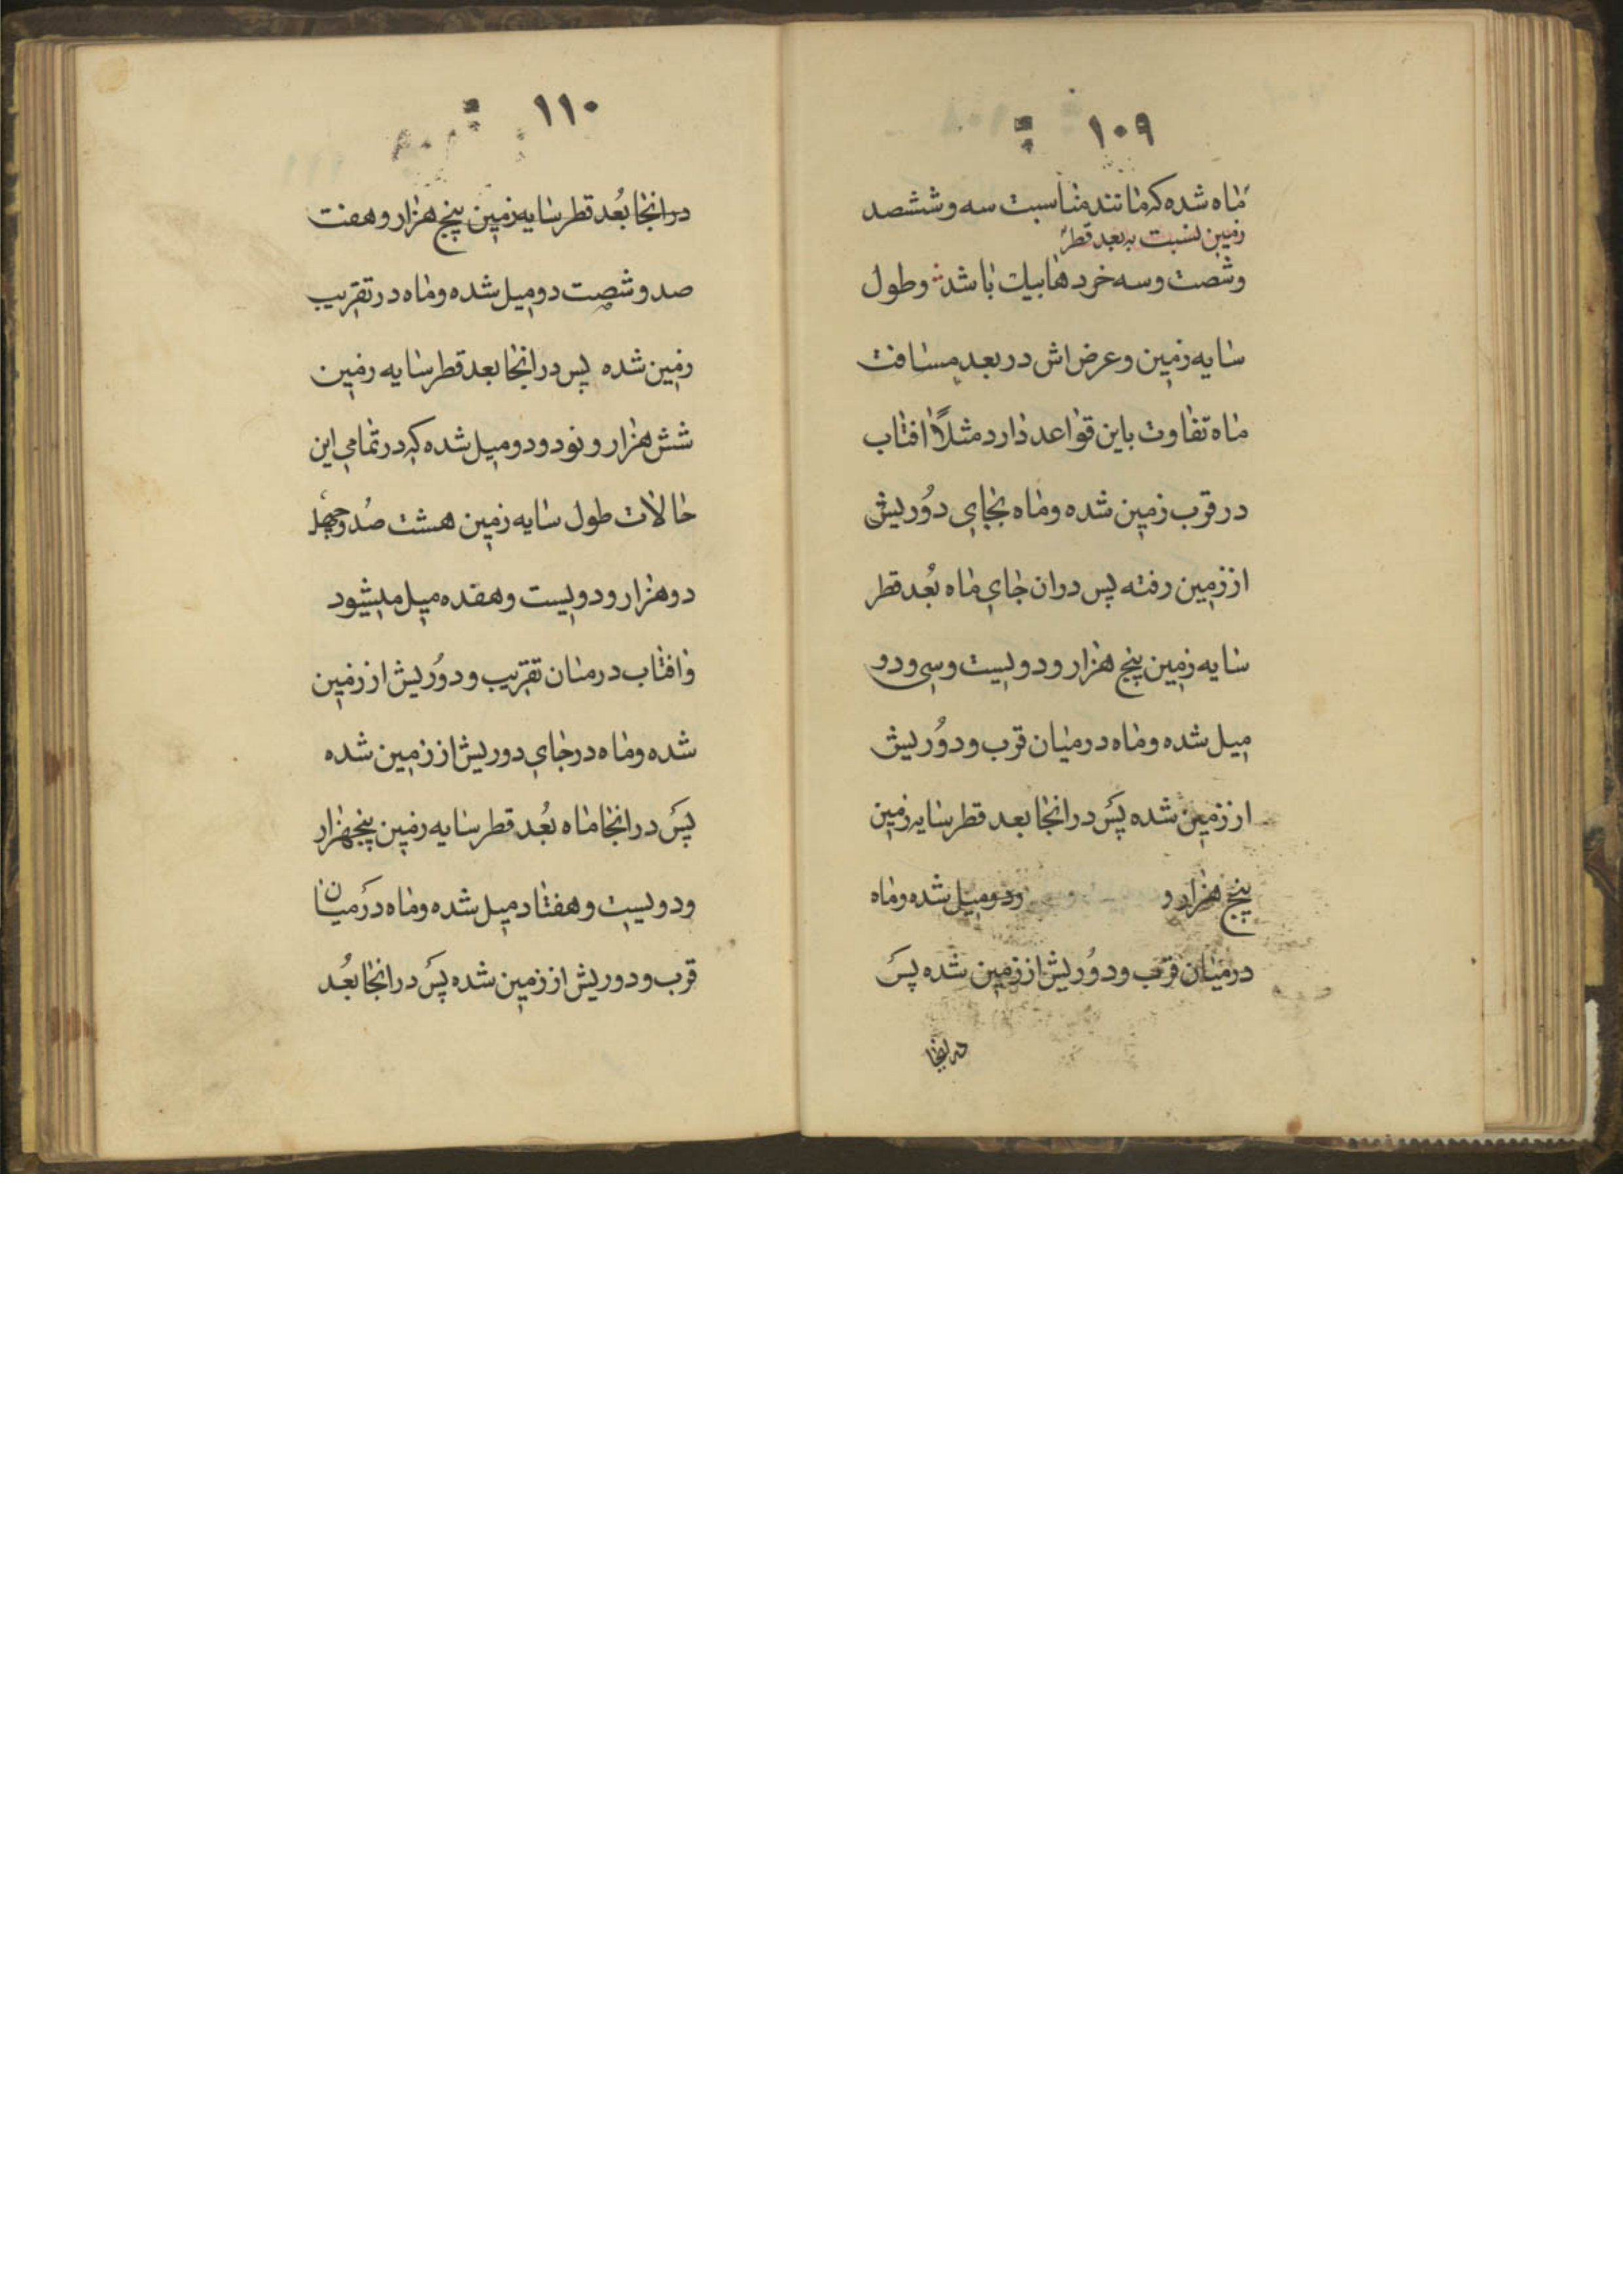 ١٠٩
ماه شده که مانند مناسبت سه و ششصد
زمین نسبت به بعد قطر
و شصت و سه خردها بیک باشد و طول
سایه زمین و عرض اش در بعد مسافت
ماه تفاوت باین قواعد دارد مثلاً افتاب
در قرب زمین شده و ماه بجای دُوریش
از زمین رفته پس دران جای ماه بُعد قطر
سایه زمین پنج هزار و دویست و سی و دو
میل شده و ماه درمیان قرب و دوُریش
از زمین شده پس درانجا بعد قطر سایه زمین
پنج هزار و ودومیل شده و ماه
درمیان قرب و دوُریش از زمین شده پس
درانجا
١١٠
درانجا بُعد قطر سایه زمین پنج هزار و هفت
صد و شصت دو میل شده و ماه در تقریب
زمین شده پس درانجا بعد قطر سایه زمین
شش هزار و نود و دو میل شده که در تمامی این
حالات طول سایه زمین هشت صُد و چهل
دو هزار و دویست و هفده میل میشود
وافتاب درمیان تقریب و دوُریش از زمین
شده و ماه در جای دوریش از زمین شده
پس درانجا ماه بُعد قطر سایه زمین پنجهزار
و دویست و هفتاد میل شده و ماه درمیان
قرب و دوریش از زمین شده پس درانجا بُعد